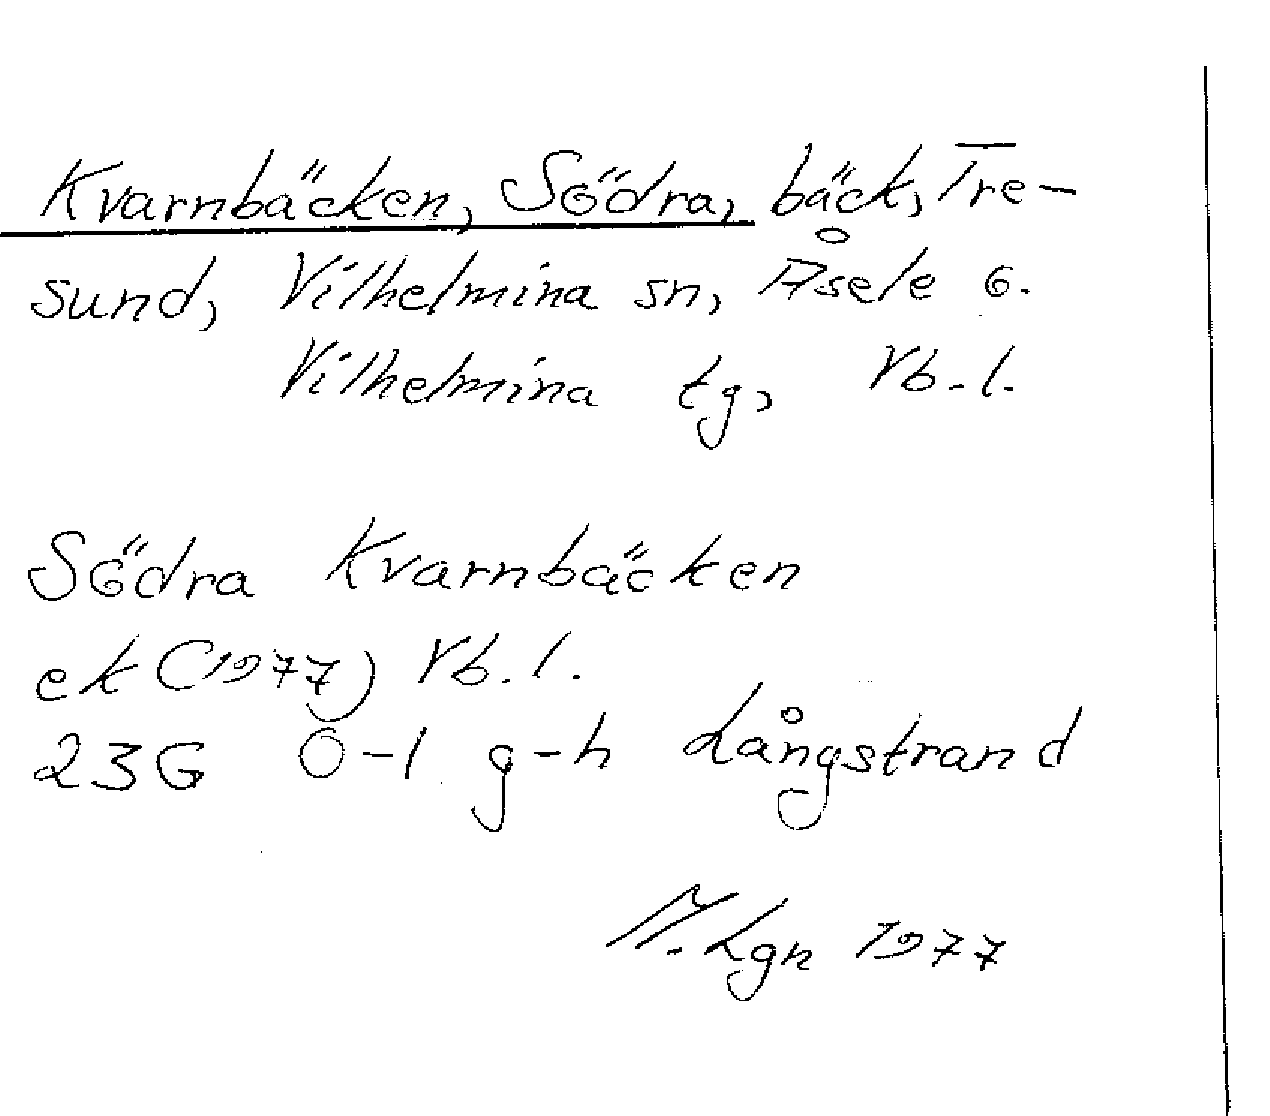 Kvarnbäcken, Södra, bäck, Tre-
sund, Vilhelmina sn, Åsele 6.
Vilhelmina tg, Vb.l.
Södra Kvarnbäcken
ek (1977) Vb.l.
23G 0-1 g-h Långstrand
M. Lgn 1977